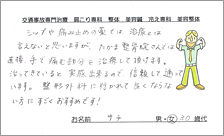 交通事故専門治療　肩こり専科　整体　美容鍼　冷え専科　美容整体
シップや痛み止めの薬では、治療とは
言えないと思いますが、たかま整骨院さんでは
直接、手で痛む部分を治療して頂けます。
治ってきていると実感出来るので信頼して通って
います。整形外科に行かれて良くならな
い方にすごくおすすめです!
お名前　サチ　男・女　30歳代